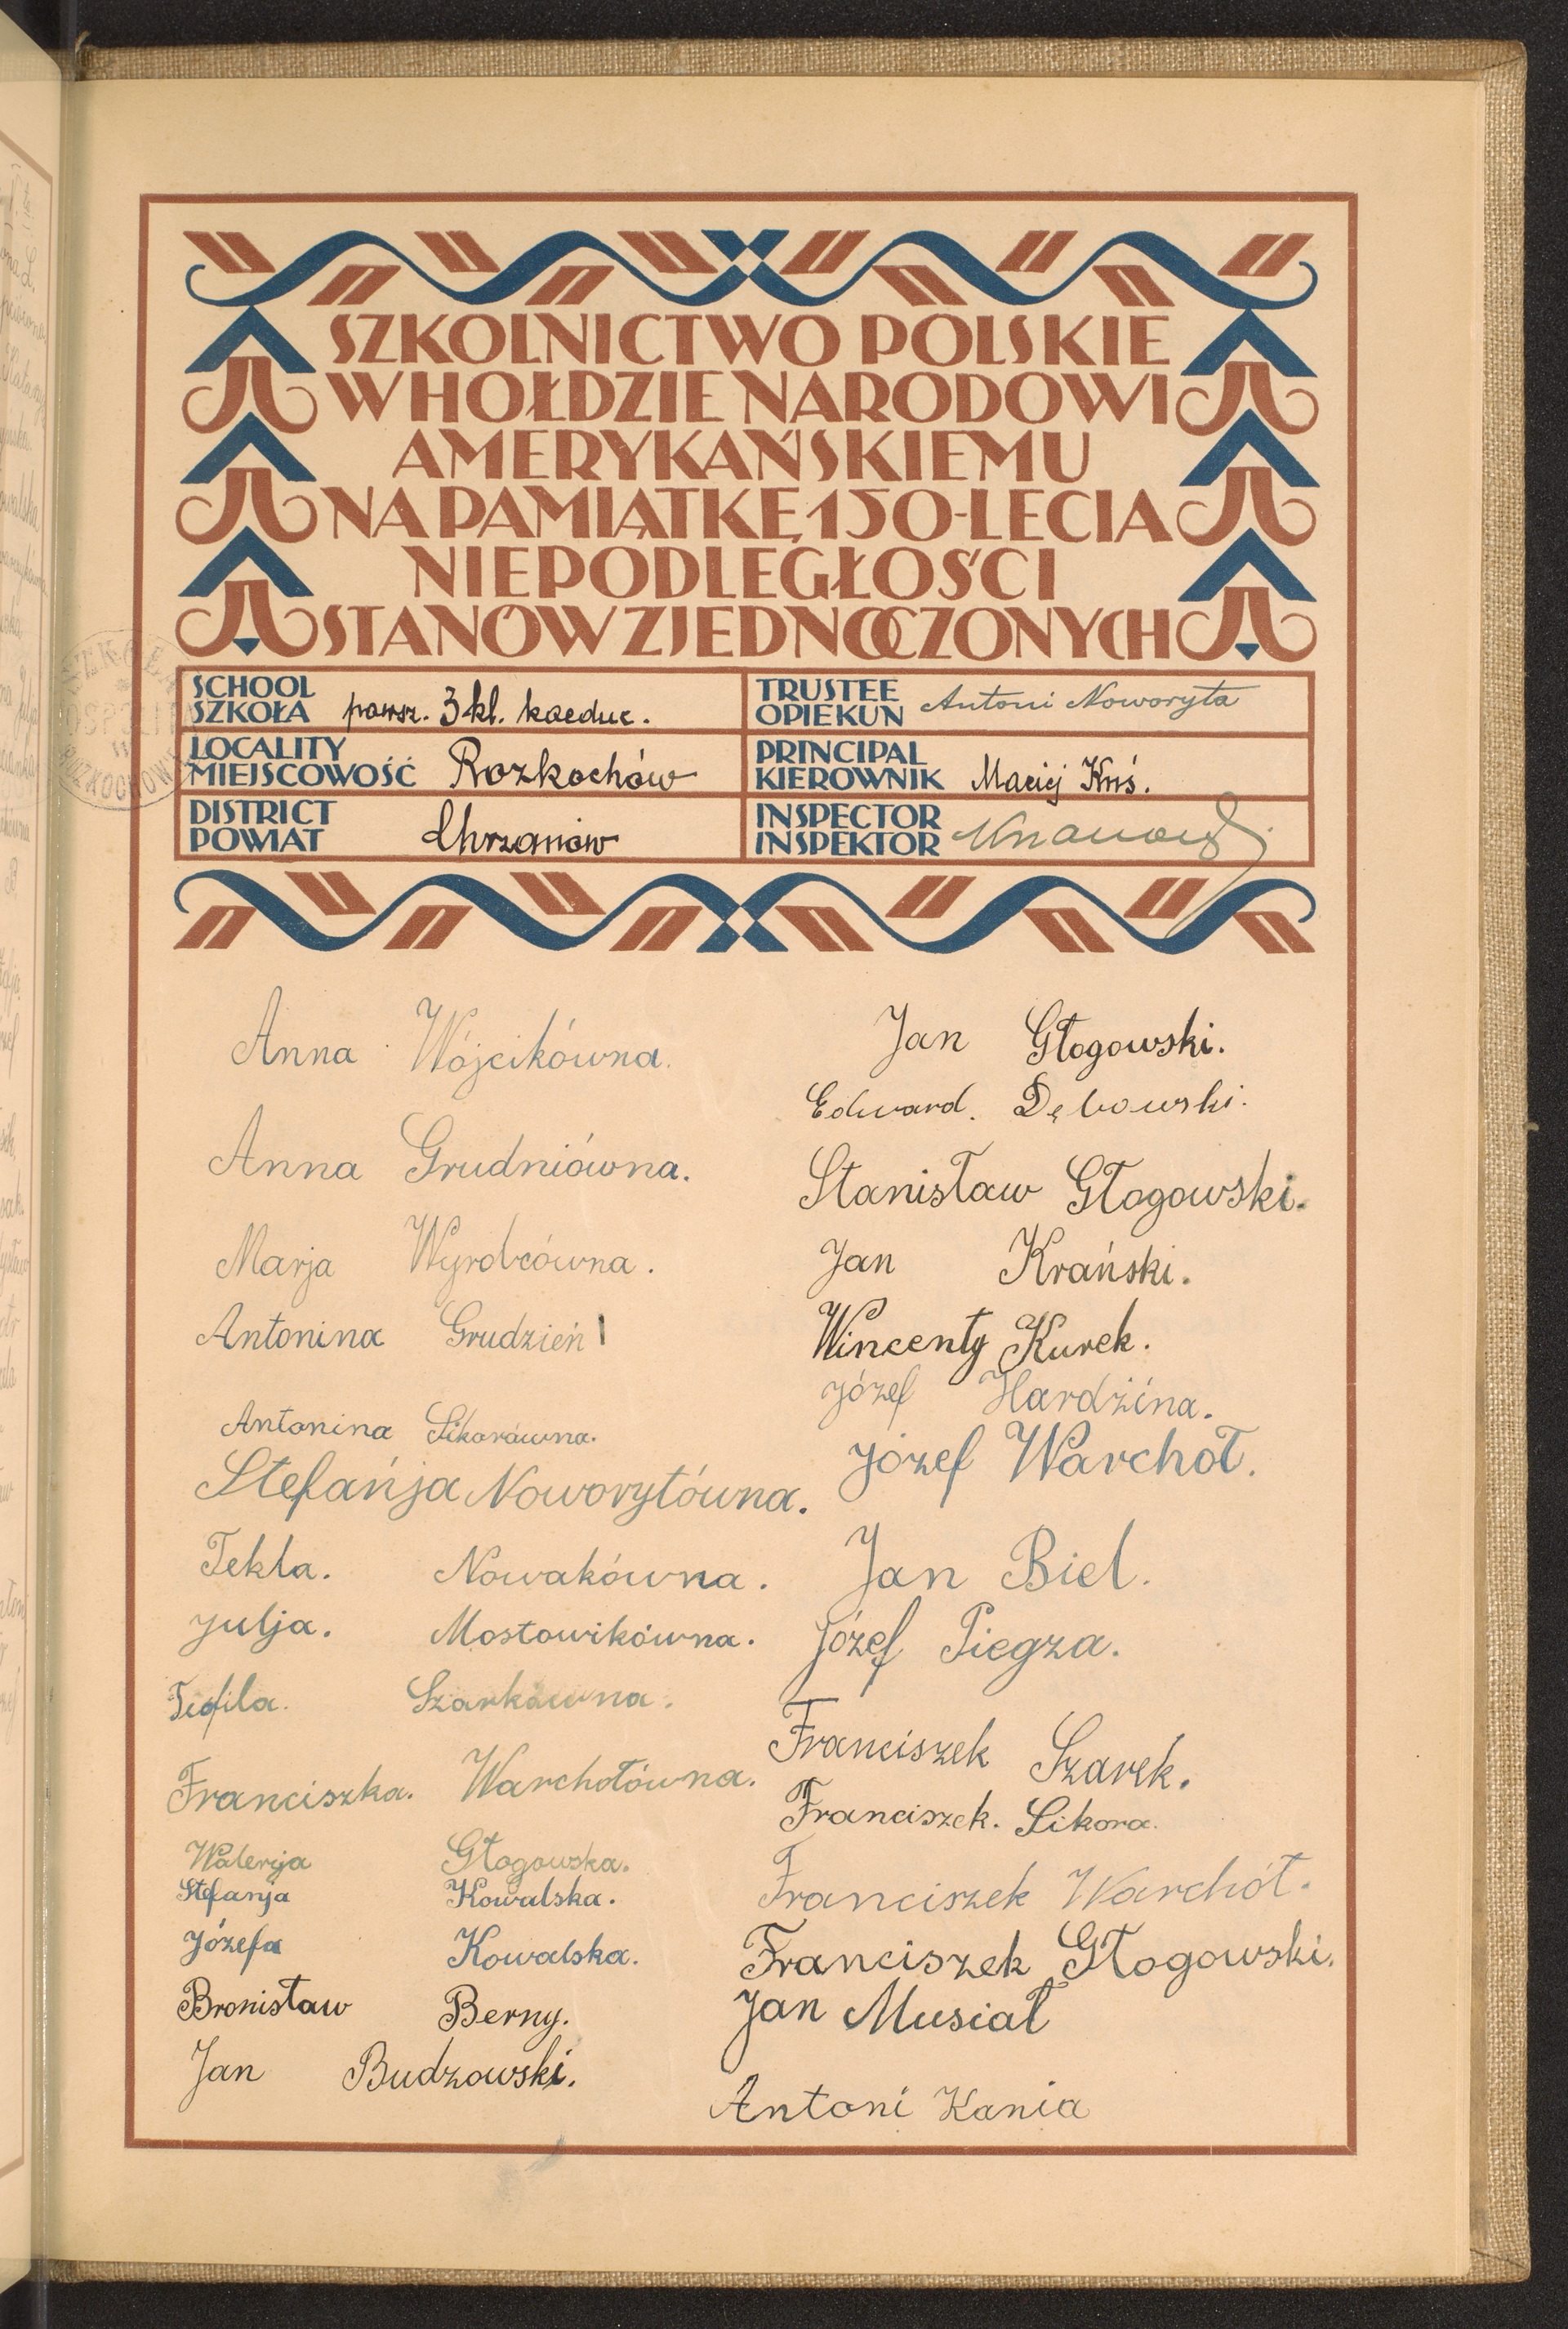 SZKOLNICTWO POLSKIE
W HOŁDZIE NARODOWI
AMERYKAŃSKIEMU
NA PAMIĄTKĘ 150-LECIA
NIEPODLEGŁOŚCI
STANÓW ZJEDNOCZONYCH
SCHOOL
SZKOŁA powsz. 3 kl. koeduc.
LOCALITY
MIEJSCOWOŚĆ Rozkochów
DISTRICT
POWIAT Chrzanów
TRUSTEE
OPIEKUN Antoni Noworyta
PRINCIPAL
KIEROWNIK Maciej
INSPECTOR
INSPEKTOR
Anna Wójcikówna.
Anna Grudniówna.
Marja Wyrobcówna.
Antonina Grudzień
Antonina Sikorówna.
Stefańja Noworytówna.
Tekla. Nowakówna.
Julja. Mostowikówna.
Teofila. Szarkówna.
Franciszka. Warchołówna.
Walerja Głogowska.
Stefanja Kowalska.
Józefa Kowalska.
Bronisław Berny.
Jan Budzowski.
Jan Głogowski.
Edward. Dębowski.
Stanisław Głogowski.
Jan Krański.
Wincenty Kurek.
Józef Hardzina.
Józef Warchoł.
Jan Biel.
Józef Piegza.
Franciszek Szarek.
Franciszek. Sikora.
Franciszek Warchół.
Franciszek Głogowski.
Jan Musiał
Antoni Kania